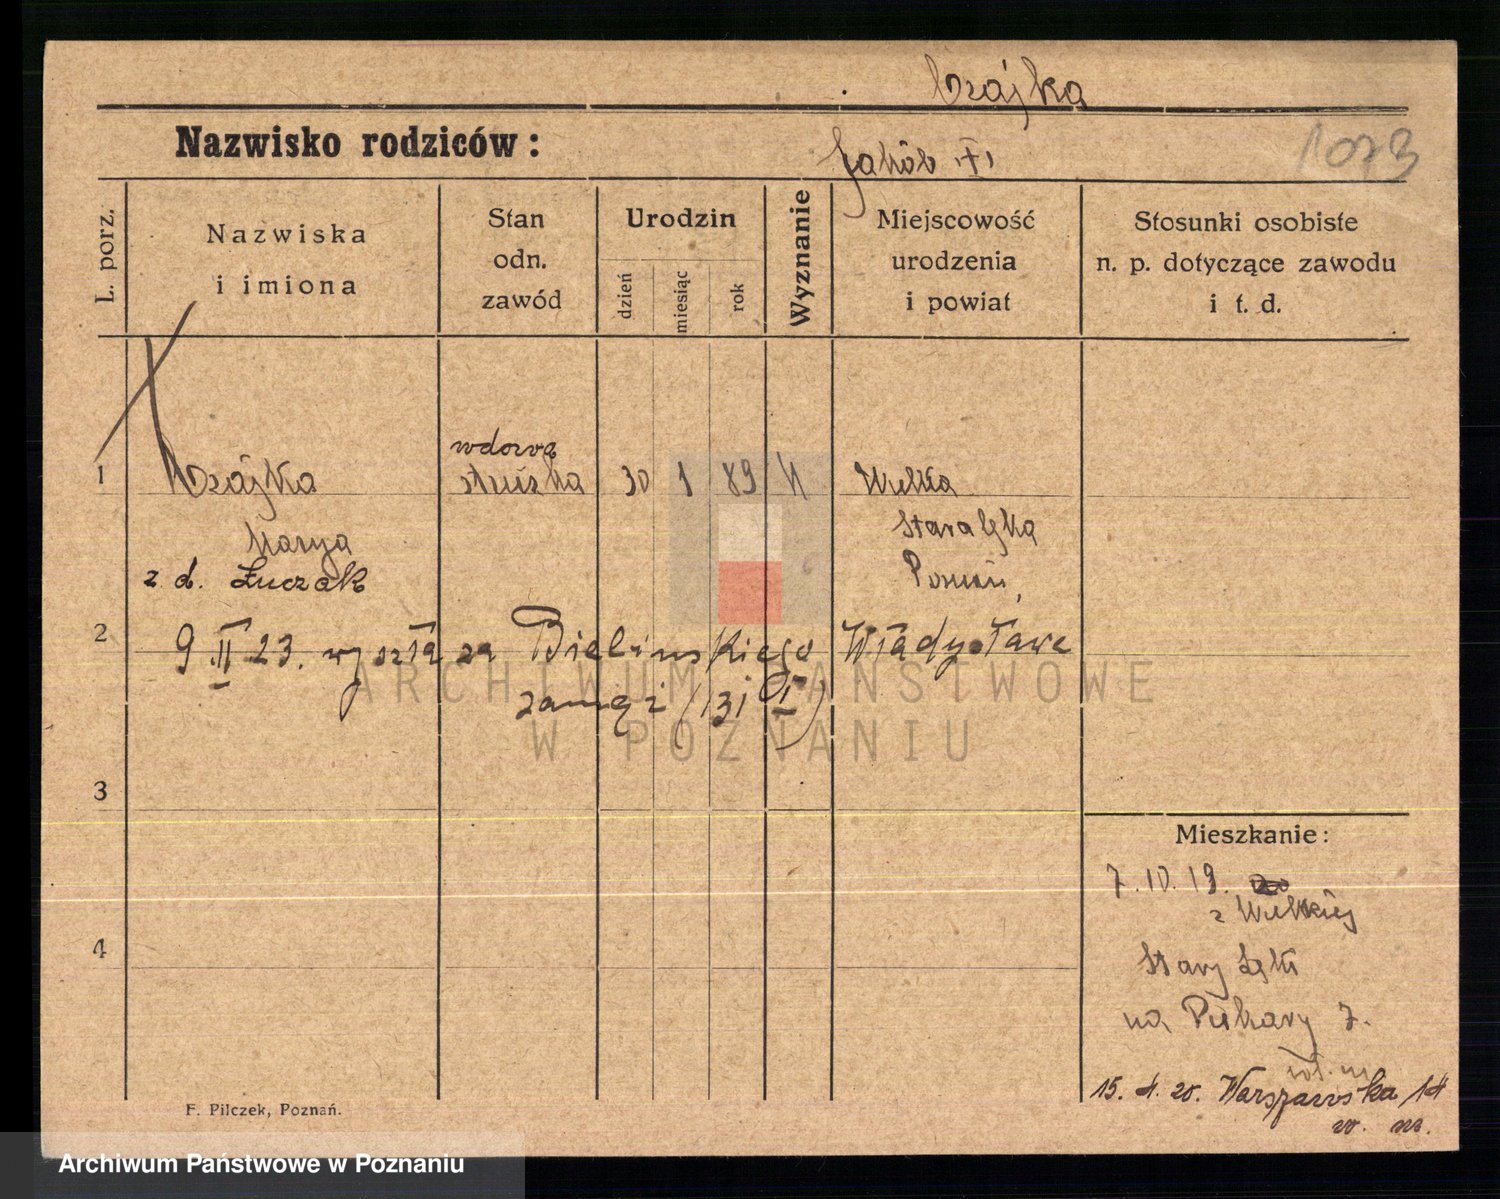 Czajka
Nazwisko rodziców:
Jakób
1073
L. porz.
Nazwiska
i imiona
Stan
odn.
zawód
Urodzin
dzień
miesiąc
rok
Wyznanie
Miejscowość
urodzenia
i powiat
Stosunki osobiste
n. p. dotyczące zawodu
i t. d.
wdowa
1 Czajka służka 30 1 89 k Wielka
Marya Starałęka
z d. Łuczak Poznań,
2 9 II 23. wyszła za Bielinskiego Władysława
zamąż (31 I)
ARCHIWUM PAŃSTWOWE
W POZNANIU
3
Mieszkanie:
7.10.19.
z Wielkiej
4
Starj Łęki
na Piekary 7.
15. 4. 20. Warszawska 14
w. m.
F. Pilczek, Poznań.
Archiwum Państwowe w Poznaniu